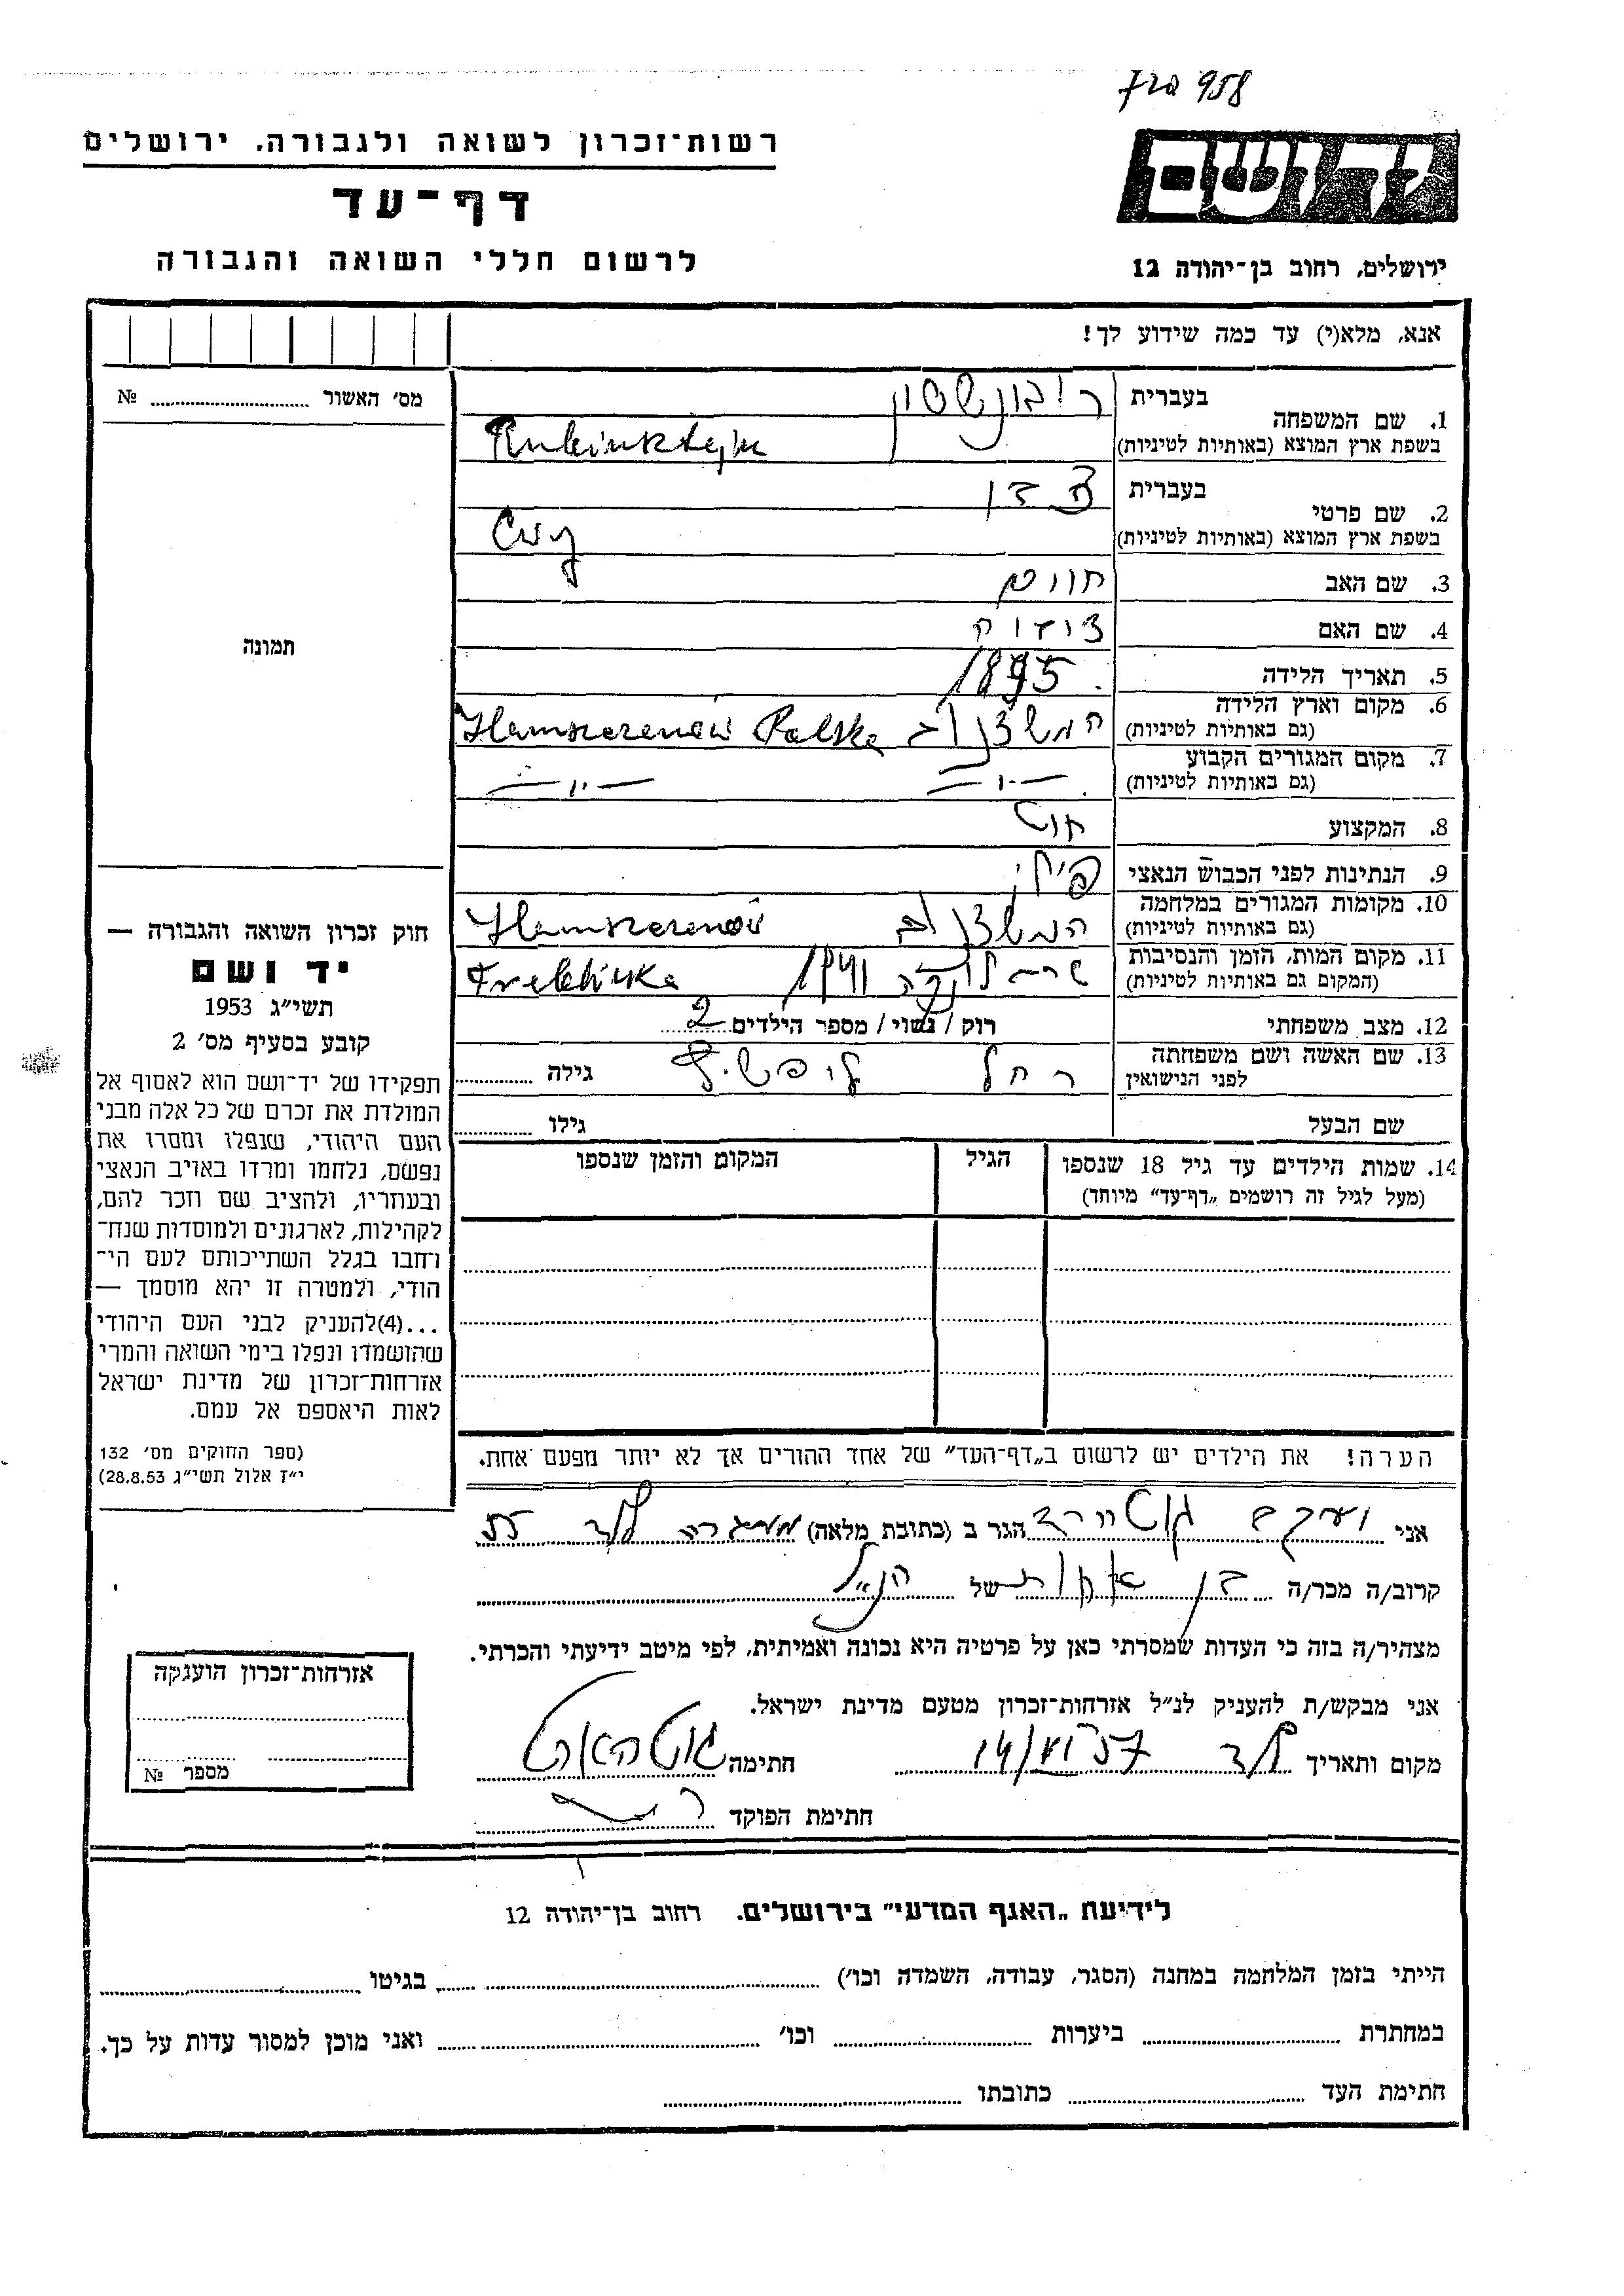 958
רשות־זכרון לשואה ולגבורה, ירושלים
דף־עד
לרשום חללי השואה והגבורה
יד ושם
ירושלים, רחוב בן־יהודה 12
אנא, מלא(י) עד כמה שידוע לך!
מס׳ האשור № 
תמונה
חוק זכרון השואה והגבורה —
יד ושם
תשי״ג 1953
קובע בסעיף מס׳ 2
תפקידו של יד־ושם הוא לאסוף אל
המולדת את זכרם של כל אלה מבני
העם היהודי, שנפלו ומסרו את
נפשם, נלחמו ומרדו באויב הנאצי
ובעוזריו, ולהציב שם וזכר להם,
לקהילות, לארגונים ולמוסדות שנח־
רחבו בגלל השתייכותם לעם הי־
הודי, ולמטרה זו יהא מוסמך —
...(4)להעניק לבני העם היהודי
שהושמדו ונפלו בימי השואה והמרי
אזרחות־זכרון של מדינת ישראל
לאות היאספם אל עמם.
(ספר החוקים מס׳ 132
י״ז אלול תשי״ג 28.8.53)
1. שם המשפחה בעברית
בשפת ארץ המוצא (באותיות לטיניות) Rubinsztejn
2. שם פרטי בעברית
בשפת ארץ המוצא (באותיות לטיניות)
3. שם האב
4. שם האם
5. תאריך הלידה 1895
6. מקום וארץ הלידה
(גם באותיות לטיניות) Polska
7. מקום המגורים הקבוע
(גם באותיות לטיניות) —״— —״—
8. המקצוע
9. הנתינות לפני הכבוש הנאצי
10. מקומות המגורים במלחמה
(גם באותיות לטיניות)
11. מקום המות, הזמן והנסיבות
(המקום גם באותיות לטיניות) 1941 Treblinka
12. מצב משפחתי רוק / נשוי / מספר הילדים 2
13. שם האשה ושם משפחתה
לפני הנישואין רחל גילה
שם הבעל גילו
14. שמות הילדים עד גיל 18 שנספו
(מעל לגיל זה רושמים „דף־עד״ מיוחד)
הגיל
המקום והזמן שנספו
הערה! את הילדים יש לרשום ב„דף־העד״ של אחד ההורים אך לא יותר מפעם אחת.
אני יעקב הגר ב (כתובת מלאה) לוד 55
קרוב/ה מכר/ה בן אחות של הנ״ל
מצהיר/ה בזה כי העדות שמסרתי כאן על פרטיה היא נכונה ואמיתית, לפי מיטב ידיעתי והכרתי.
אני מבקש/ת להעניק לנ״ל אזרחות־זכרון מטעם מדינת ישראל.
מקום ותאריך לוד חתימה
חתימת הפוקד
אזרחות־זכרון הוענקה
מספר №
לידיעת „האגף המדעי״ בירושלים. רחוב בן־יהודה 12
הייתי בזמן המלחמה במחנה (הסגר, עבודה, השמדה וכו׳) בגיטו
במחתרת ביערות וכו׳ ואני מוכן למסור עדות על כך.
חתימת העד כתובתו